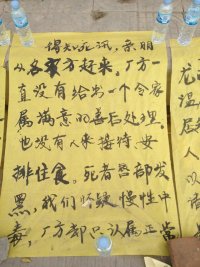 得知死讯，亲朋
从各家方赶来，厂方一
直没有给出一个令家
属满意的善后处理。
也没有人来接待，安
排住食。死者唇部发
黑，我们怀疑慢性中
毒，厂方却只认属正常